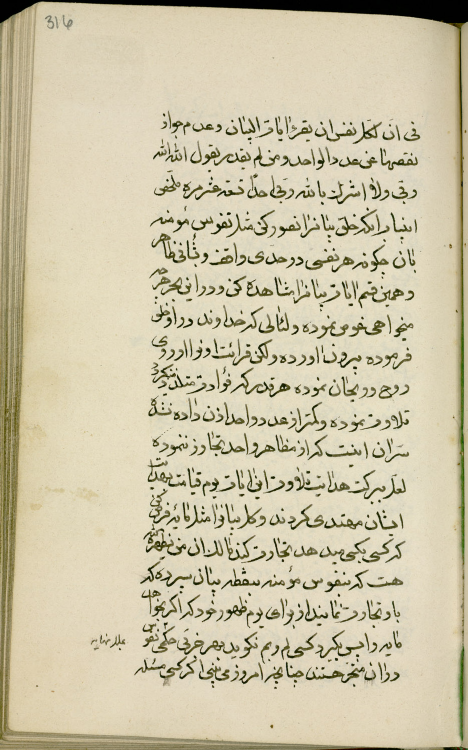 316
فی ان لکل نفس ان یقرء ایات البیان و عدم جواز
نقصها عن عدد الواحد و من لم یقدر یقول الله الله
ربی و لا اشرک بالله ربی احدا تسعة عشر مره ملخص
این باب انکه خلق بیانرا تصور کن مثل نفوس مومنه
بان چگونه هر نفسی در حدی واقف و بشانی ظاهر
و همین قسم ایات بیانرا مشاهده کن و در این بحر هر چه
میخواهی غوص نموده و لئالی که خداوند در او خلق
فرموده بیرون اورده ولکن قرائت او نوا او روی
روح و ریحان نموده هر قدر که فؤاد متلذذ میگردد
تلاوت نموده و کمتر از عدد واحد اذن داده نشده
سران اینست که از مظاهر واحد تجاوز ننموده
لعل ببرکت هدایت تلاوت این ایات یوم قیامت بهدایت
ایشان مهتدی گردند و کل بیانرا مثل مایه فرض کن
که کسی بکسی میدهد تجارت کند مالک ان من یظهره الله
هست که بنفوس مؤمنه بنقطه بیان سپرده که
باو تجارت نمایند از برای یوم ظهور خود که اگر بخواهد
مایه واپس گیرد کسی لم و بم نگوید بهر حرفی حکمی نفوس
در ان متحیر هستند چنانچه امروز می بینی اگر کسی مسئله